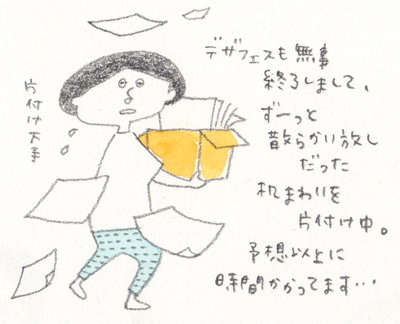 デザフェスも無事
終了しまして、
ずーっと
散らかい放し
だった
机まわりを
片付け中。
予想以上に
時間かかってます…
片付け下手